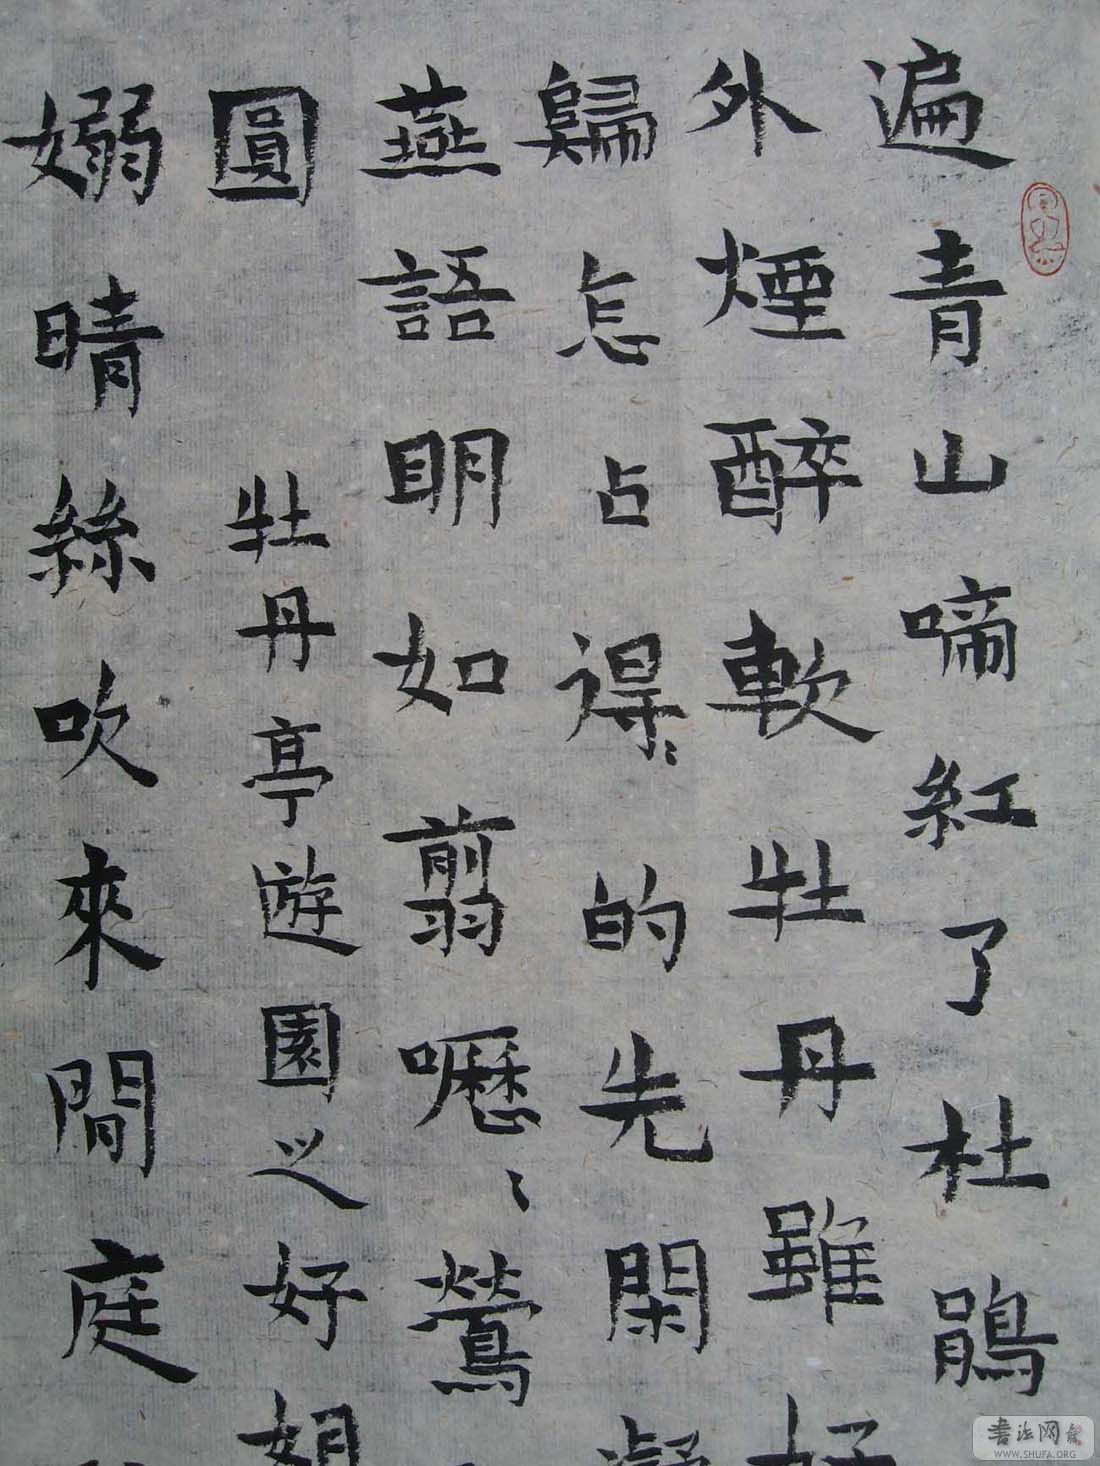 遍青山啼紅了杜鵑
外煙醉軟牡丹雖好
歸怎占得〻的先閑凝
燕語明如翦嚦〻鶯
圓 牡丹亭遊園之好姐
嫋晴絲吹來閒庭
書法网
WWW.SHUFA.ORG